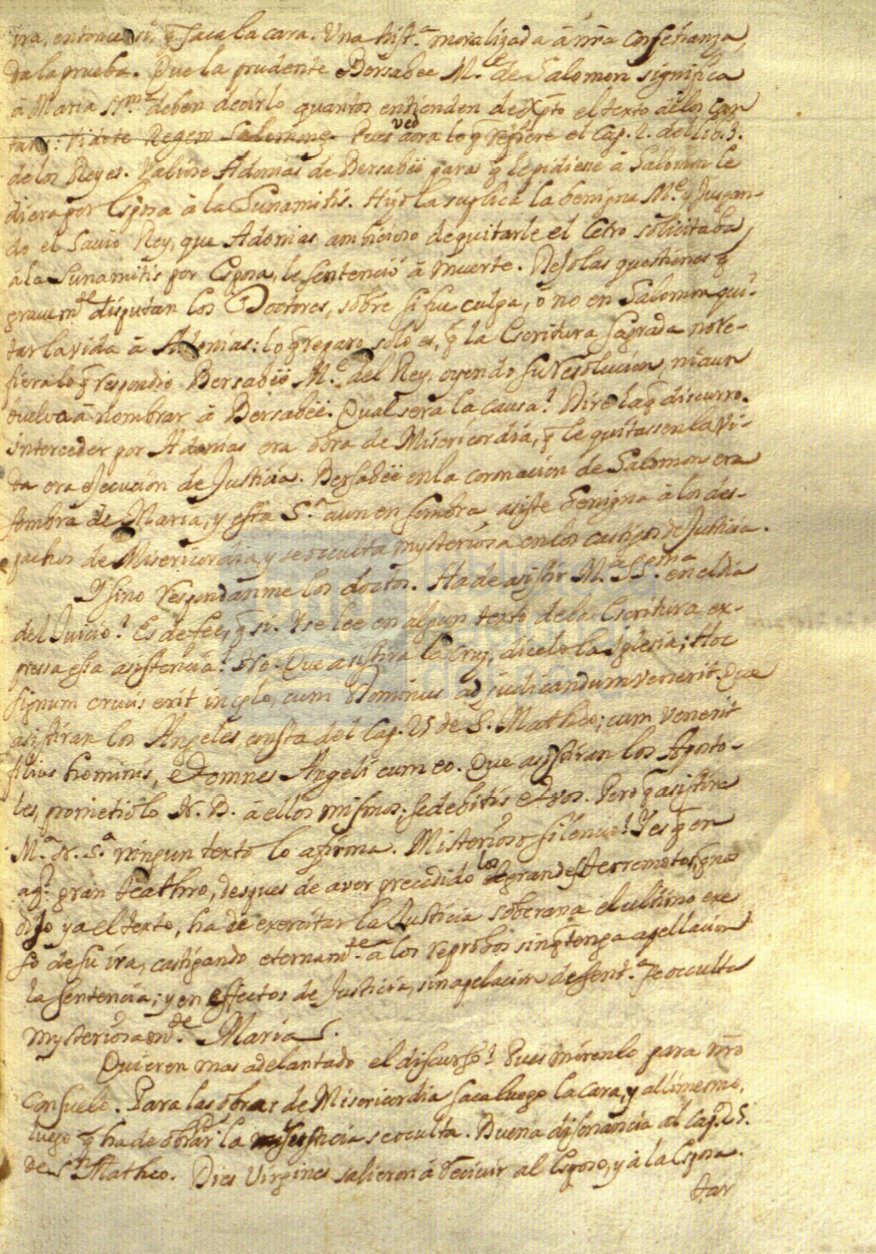 ira, entonces si q̃ saca la cara. Una hist.ª moralizada à nr̃a enseñanza,
da la prueba. Que la prudente Bersabee M.e de Salomon significa
à Maria SS.ma deben decirlo quantos entienden de Xpto el texto de los Can-
tares: Videte Regem Salomonem. Pues ved aora lo q̃ refiere el Cap. 2. del lib. 3.
de los Reyes. Valiose Adonias de Bersabëe para q̃ le pidiese à Salomon le
diera por Esposa à la Sunamitis. Hizo la suplica la benigna M.e y Juzgan-
do el Savio Rey, que Adonias ambicioso de quitarle el Cetro solicitaba
à la Sunamitis por Esposa, le sentenció à muerte. Dejo las questiones q̃
gravem.te disputan los Doctores, sobre si fue culpa, ò no en Salomon qui-
tar la vida à Adonias: lo q̃ reparo solo es, q̃ la Escritura Sagrada no re-
fiera lo q̃ respondio Bersabëe M.e del Rey, oyendo su resolucion, ni aun
buelva à nombrar à Bersabëe. Qual sera la causa? Dire la q̃ discurro.
Interceder por Adonias era obra de Misericordia, q̃ le quitassen la vi-
da era ejecucion de Justicia. Bersabëe en la coronacion de Salomon era
sombra de Maria, y esta S.ª aun en sombra asiste benigna à los des-
pachos de Misericordia, y se occulta mysteriosa en los castigos de Justicia.
Y sino respondanme los doctos. Ha de asistir M.ª SS.ma en el dia
del Juicio? Es de fee, q̃ si. Y se lee en algun texto de la Escritura ex-
pressa esta asistencia? No. Que asistira la Cruz, dicelo la Iglesia; Hoc
signum crucis erit in cęlo, cum Dominus ad judicandum venerit. Que
asistiran los Angeles consta del Cap. 25 de S. Matheo; cum venerit
filius hominis, et omnes Angeli cum eo. Que asistiran los Aposto-
les, prometiolo N. D. à ellos mismos; sedebitis et vos. Pero q̃ asistira
M.ª N. S.ª ningun texto lo afirma. Misterioso silencio! Y es q̃ en
aq.l gran teathro, despues de aver precedido los grandes terremotos, q̃ nos
dijo ya el texto, ha de exercitar la Justicia soberana el ultimo exe
so de su ira, castigando eternam.te à los reprobos sin q̃ tenga apellacion
la sentencia; y en effectos de Justicia, sin apelacion de sent.ª se occulta
mysteriosam.te Maria S.
Quieren mas adelantado el discurso? Pues mirenlo para nr̃o
Consuelo. Para las obras de Misericordia saca luego la cara, y alli mesmo,
luego q̃ ha de obrar la Justicia se oculta. Buena disonancia al Cap. 25.
de S.n Matheo. Dies Virgines salieron à recivir al Esposo, y à la Esposa.
tar